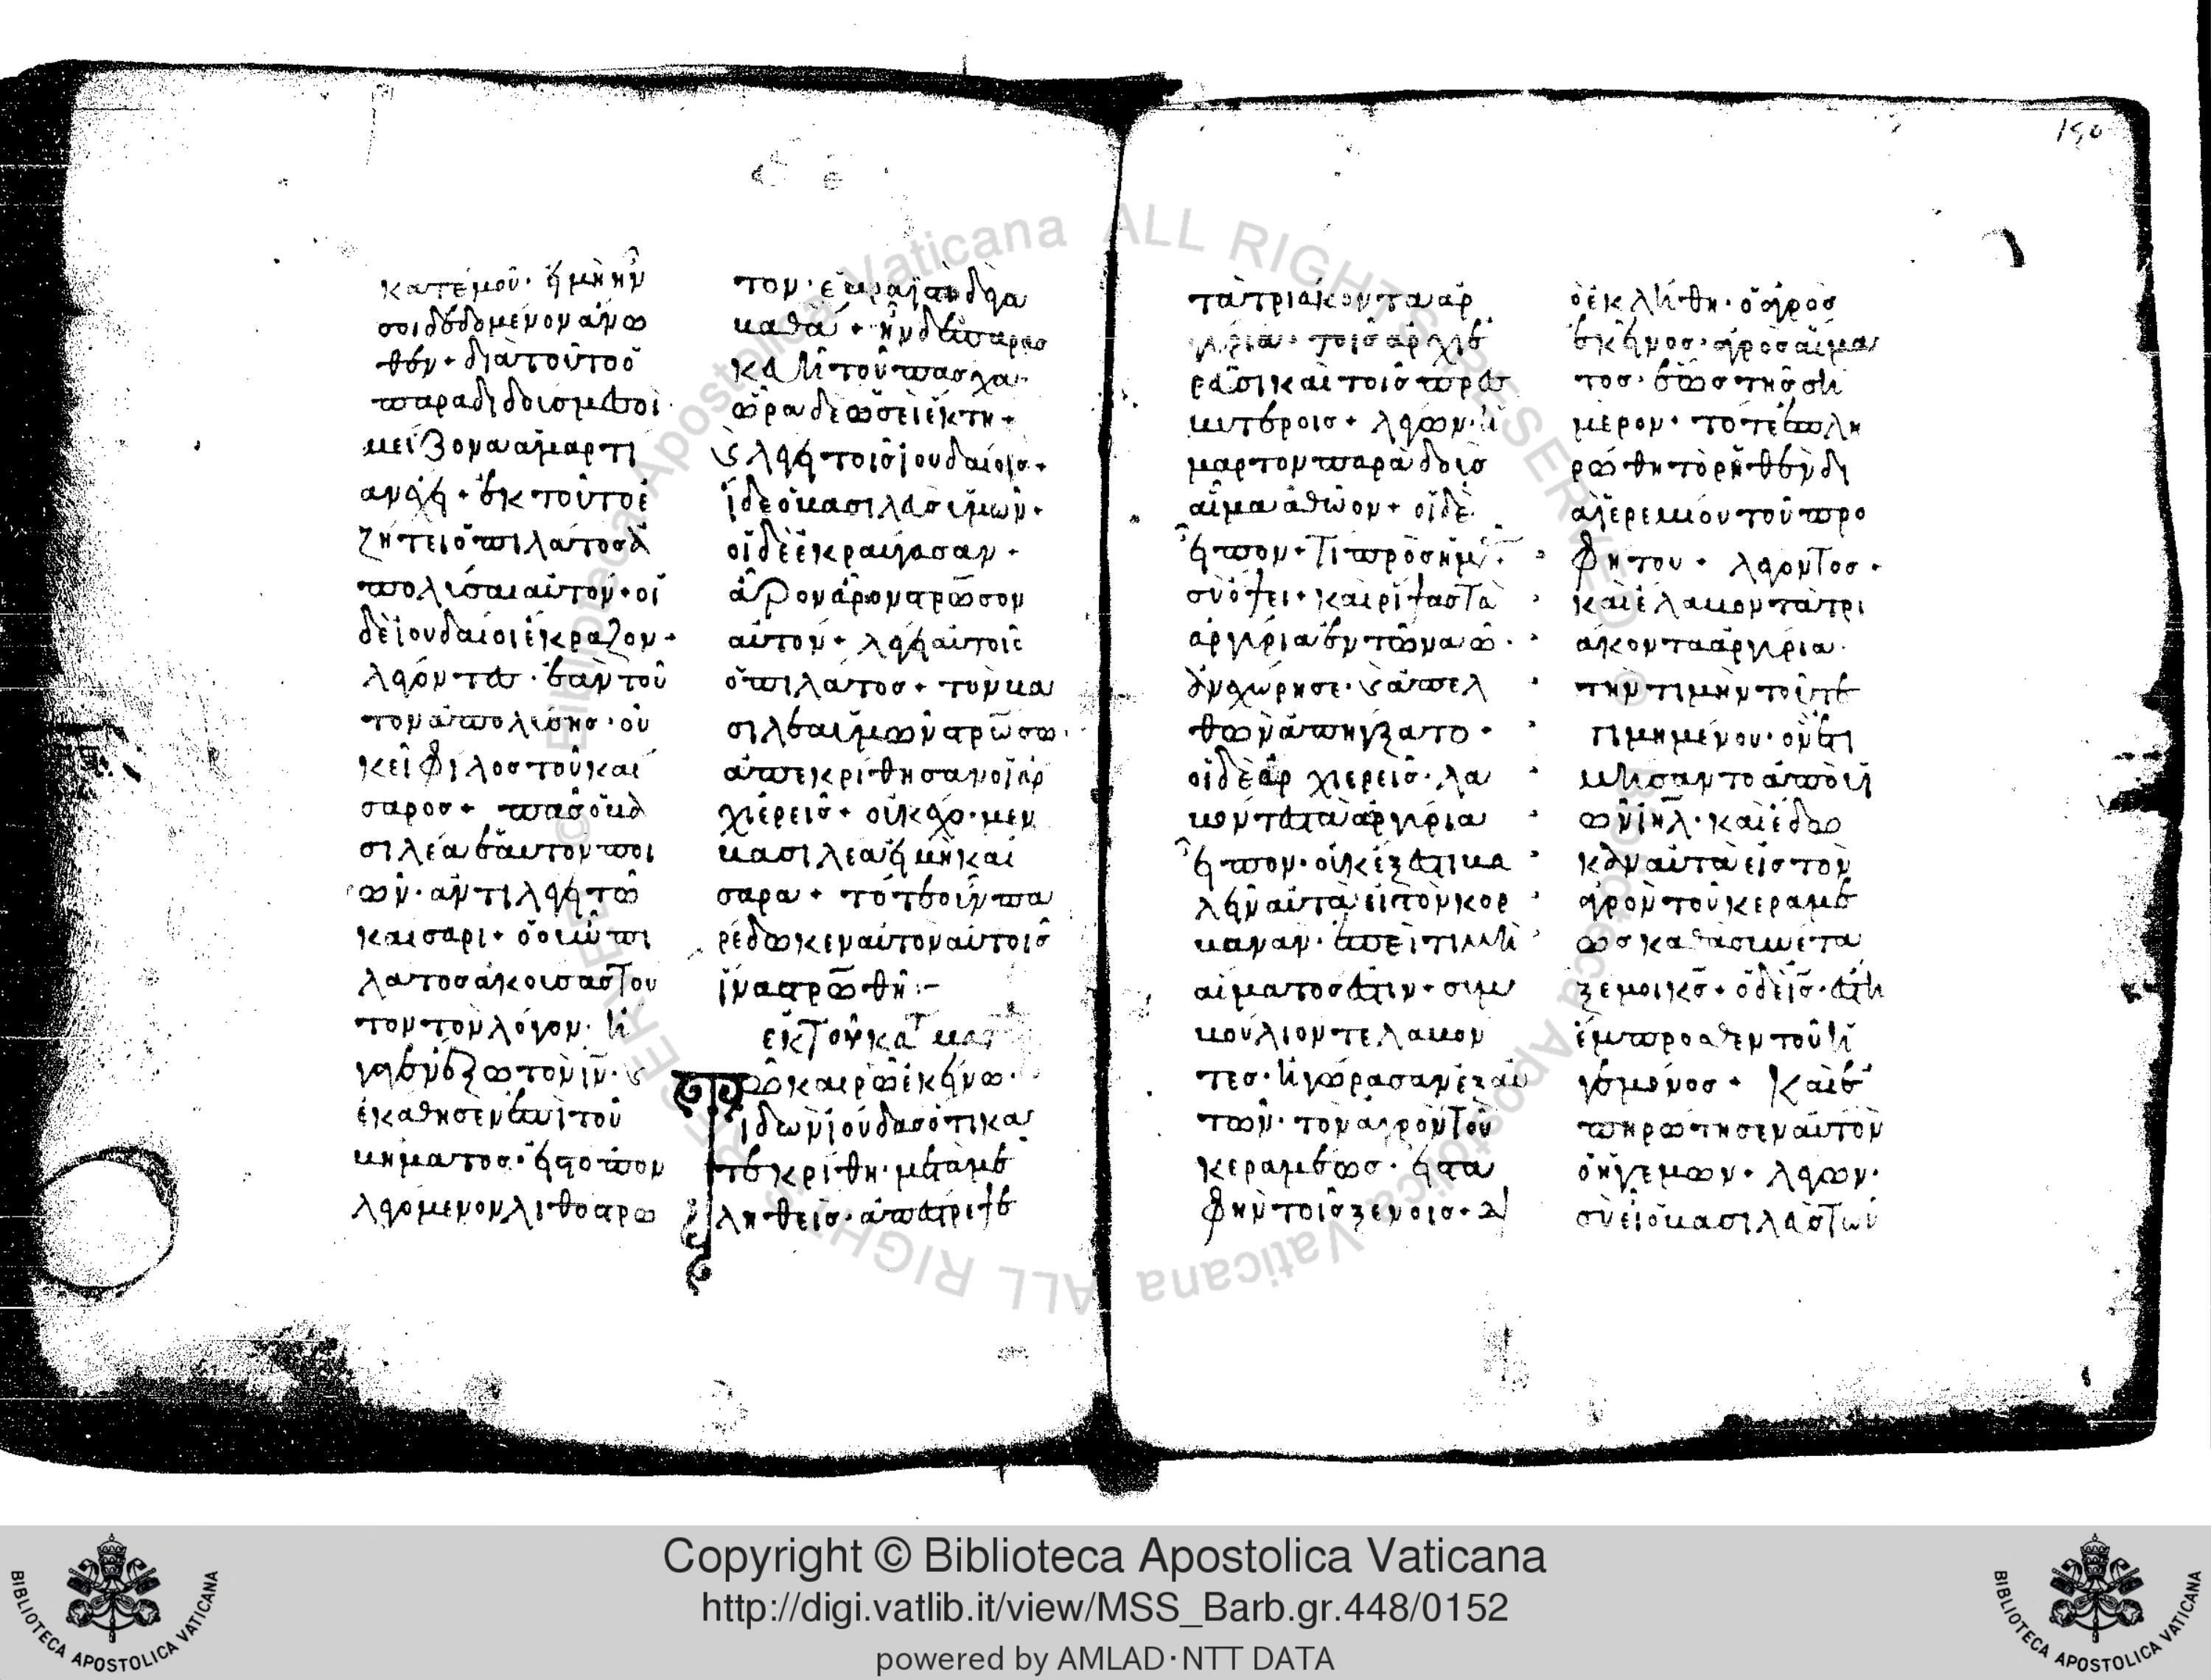 κατ' ἐμοῦ· εἰ μὴ ἦν
σοι δεδομένον ἄνω
θεν + διὰ τοῦτο ὁ
παραδιδούς με σοι·
μείζονα ἁμαρτί
αν ἔχει + ἐκ τούτου ἐ
ζήτει ὁ πιλάτος ἀ
πολῦσαι αὐτόν + οἱ
δὲ ἰουδαῖοι ἔκραζον +
λέγοντες · ἐὰν τοῦ
τον ἀπολύσης · οὐ
κ εἶ φίλος τοῦ καί
σαρος + πᾶς ὁ βα
σιλέα ἑαυτὸν ποι
ῶν · ἀντιλέγει τῶ
καίσαρι + ὁ οὖν πι
λάτος ἀκούσας τοῦ
τον τὸν λόγον · ἤ
γαγεν ἔξω τὸν ἰν · ϗ
ἐκάθησεν ἐπὶ τοῦ
βήματος · εἰς τόπον
λεγόμενον λιθόστρω
τον · ἑβραϊστὶ δὲ γα
βαθά + ἦν δὲ παρασ
κευὴ τοῦ πάσχα ·
ὥρα δὲ ὡσεὶ ἕκτη +
ϗ λέγει τοῖς ἰουδαίοις +
ἴδε ὁ βασιλεὺς ὑμῶν +
οἱ δὲ ἐκραύγασαν +
ἆρον ἆρον στρωσον
αὐτόν + λέγει αὐτοῖς
ὁ πιλάτος + τὸν βα
σιλέα ὑμῶν στρώσω ·
ἀπεκρίθησαν οἱ ἀρ
χιερεῖς + οὐκ ἔχομεν
βασιλέα εἰ μὴ καί
σαρα + τότε οὖν πα
ρέδωκεν αὐτὸν αὐτοῖς
ἵνα στρωθῆ :-
ἐκ τοῦ κατ ματ
Τῶ καιρῶ ἐκείνω ·
ἰδὼν ἰούδας ὅτι κα
τεκρίθη · μεταμε
ληθεὶς · ἀπέστρεψε
τὰ τριάκοντα ἀρ
γύρια · τοῖς ἀρχιε
ρεῦσι καὶ τοῖς πρεσ
βυτέροις + λέγων · ἥ
μαρτον παραδοὺς
αἷμα ἀθῶον + οἱ δὲ
εἶπον + τί πρὸς ἡμᾶς ·
σὺ ὄψει + καὶ ρίψας τὰ
ἀργύρια ἐν τῶ ναῶ ·
ἀνεχώρησε · ϗ ἀπελ
θὼν ἀπήγξατο ·
οἱ δὲ ἀρχιερεῖς · λα
βόντες τὰ ἀργύρια
εἶπον · οὐκ ἔξεστι βα
λεῖν αὐτὰ εἰς τὸν κορ
βανᾶν · ἐπεὶ τιμὴ
αἵματός ἐστιν + συμ
βούλιον τε λαβόν
τες · ἠγόρασαν ἐξ αὐ
τῶν · τὸν ἀγρὸν τοῦ
κεραμέως · εἰς τα
φὴν τοῖς ξένοις + δι
ὃ ἐκλήθη · ὁ ἀγρὸς
ἐκεῖνος · ἀγρὸς αἵμα
τος · ἕως τῆς σή
μερον · τότε ἐπλη
ρώθη τὸ ρηθὲν δι
α ἱερεμίου τοῦ προ
φήτου + λέγοντος +
καὶ ἔλαβον τὰ τρι
άκοντα ἀργύρια ·
τὴν τιμὴν τοῦ τε
τιμημένου · ὃν ἐτι
μήσαντο ἀπὸ υἱ
ῶν ἰηλ · καὶ ἔδω
καν αὐτὰ εἰς τὸν
ἀγρὸν τοῦ κεραμέ
ως καθὰ συνέτα
ξέ μοι κς + ὁ δὲ ις · ἔστη
ἔμπροσθεν τοῦ ἡ
γεμόνος + Καὶ ἐ
πηρώτησεν αὐτὸν
ὁ ἡγεμών + λέγων ·
σὺ εἶ ὁ βασιλεὺς τῶν
150
Copyright © Biblioteca Apostolica Vaticana
http://digi.vatlib.it/view/MSS_Barb.gr.448/0152
powered by AMLAD·NTT DATA
BIBLIOTECA APOSTOLICA VATICANA
BIBLIOTECA APOSTOLICA VATICANA
© Biblioteca Apostolica Vaticana ALL RIGHTS RESERVED
© Biblioteca Apostolica Vaticana ALL RIGHTS RESERVED